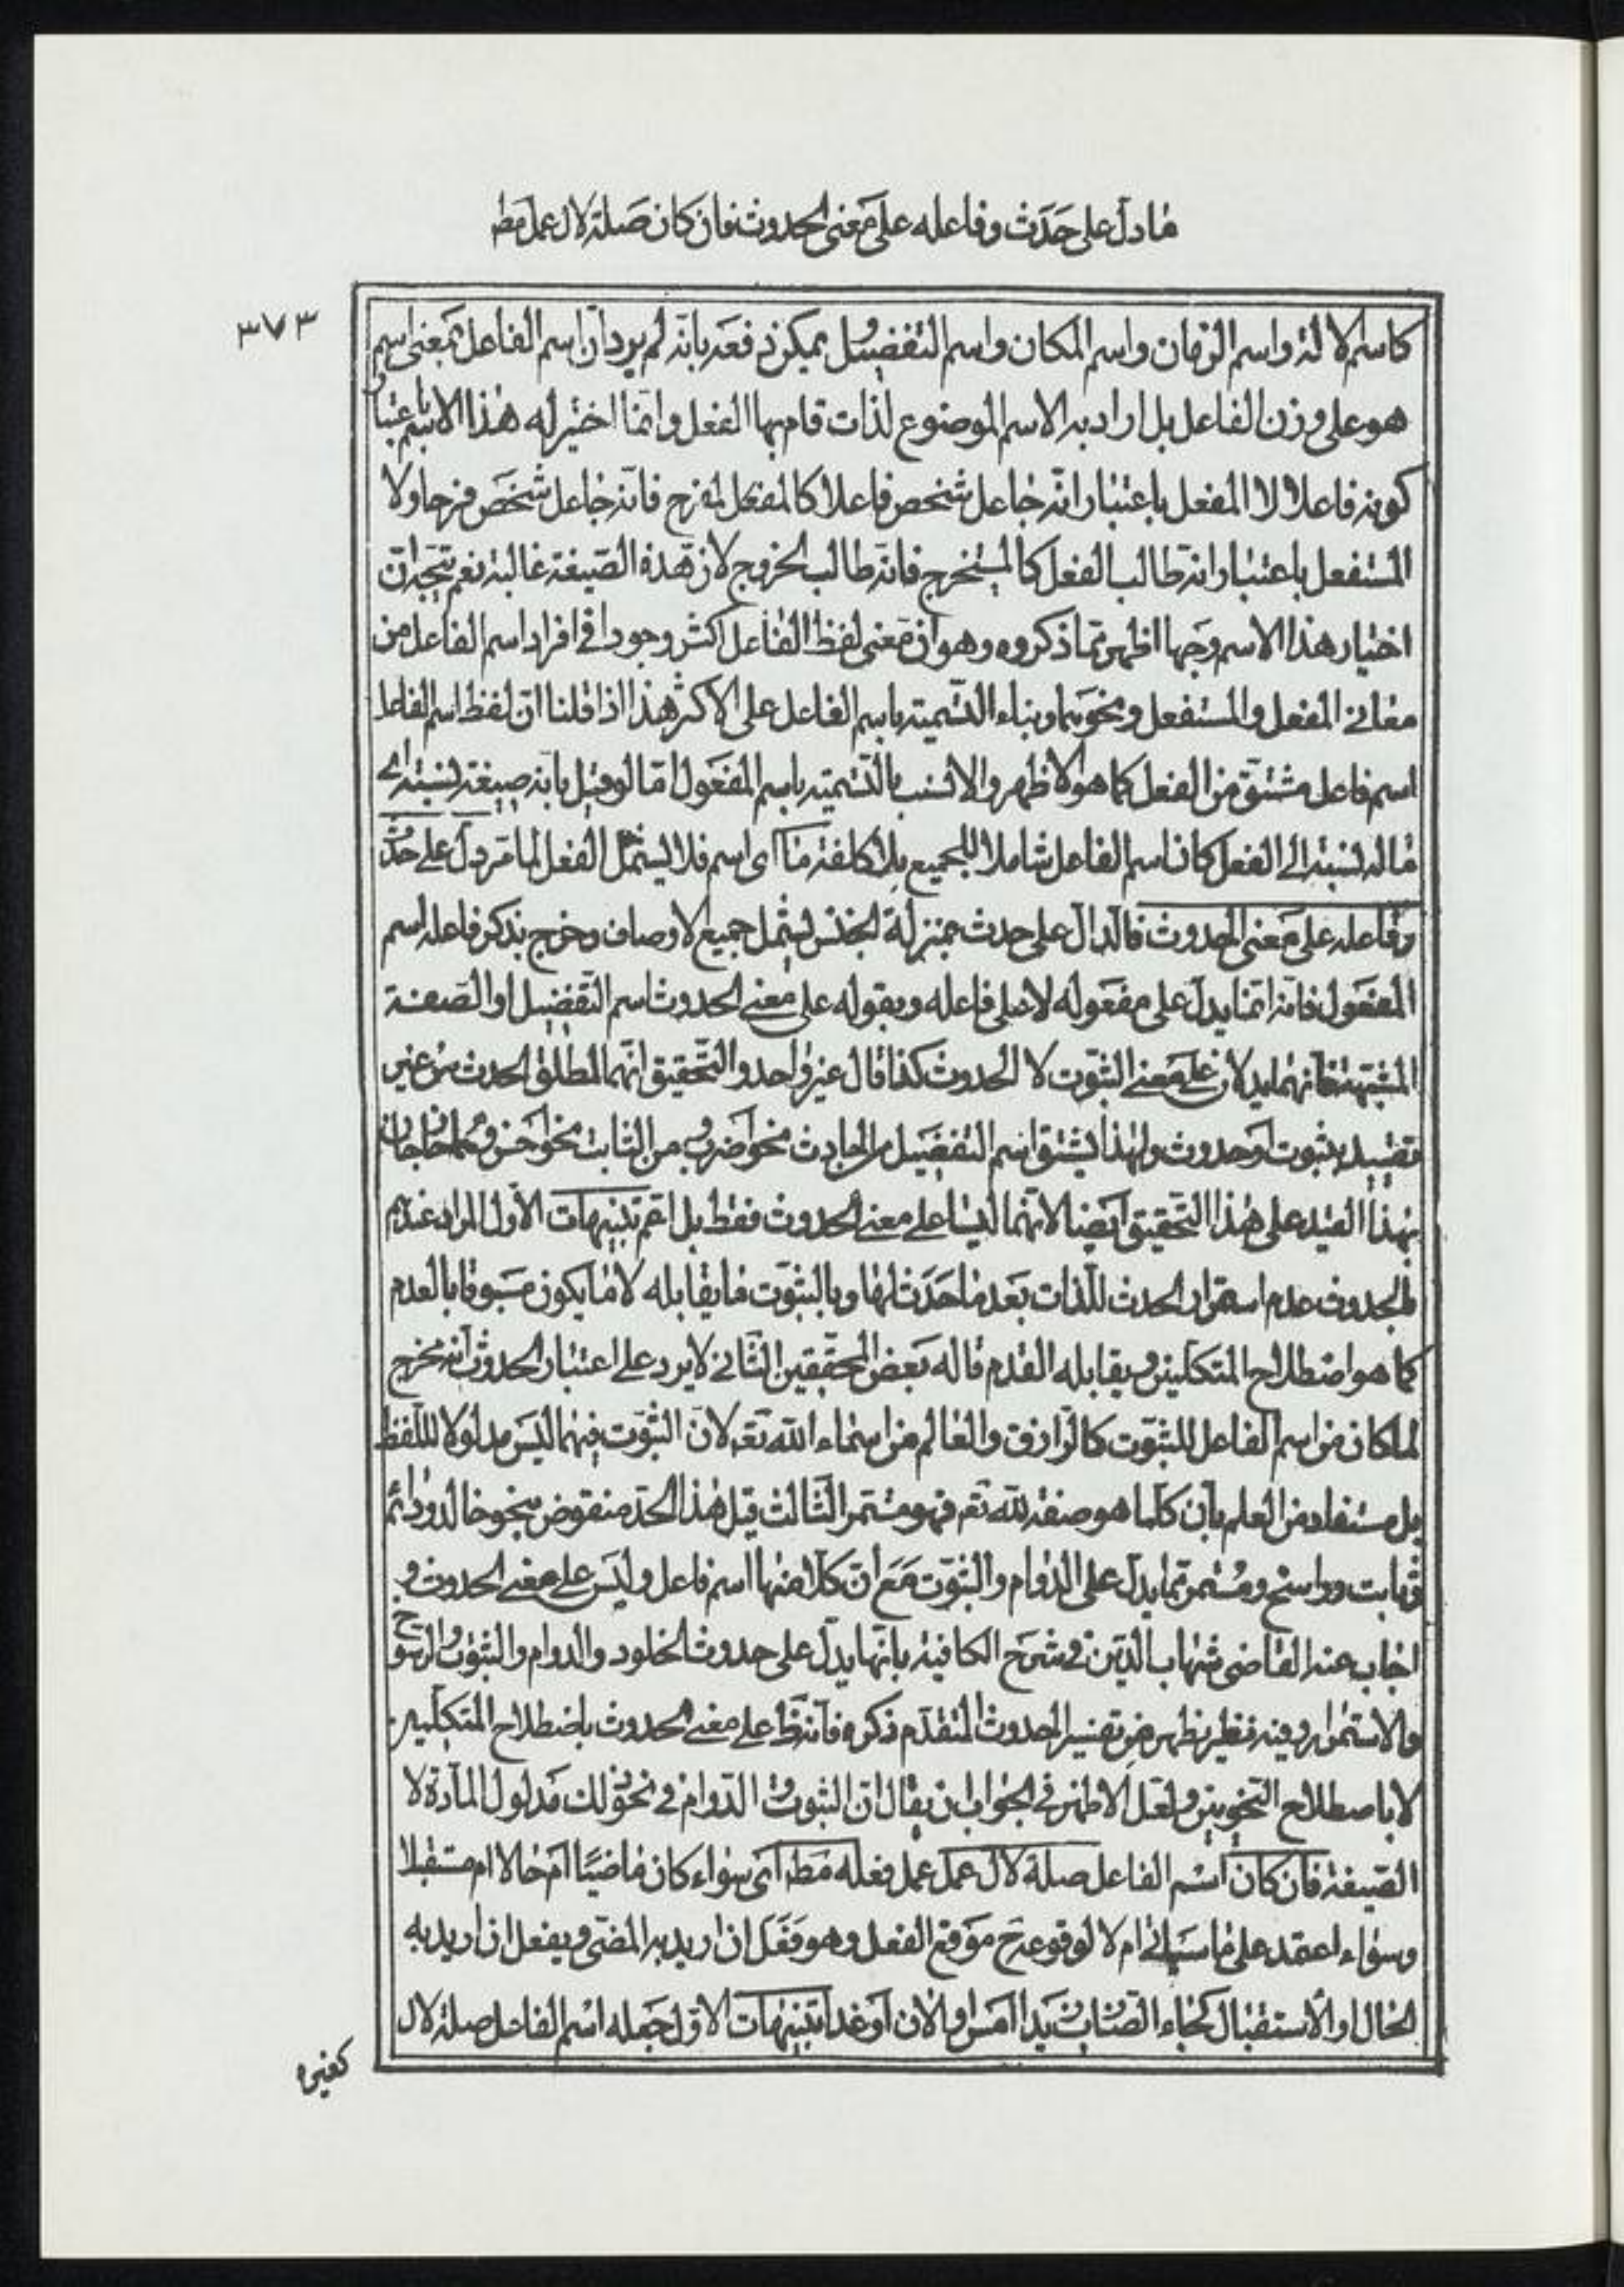 ما دلّ على حَدَث وفاعله على مَعنى الحدوث فان كان صَلة لال عمل مط
٣٧٣
كاسم الالة واسم الزمان واسم المكان واسم التفضيل يمكن دفعَه بانّه لم يرد انّ اسم الفاعل بمعنى اسم
هو على وزن الفاعل بل اراد به الاسم الموضوع لذات قام بها الفعل وانّما اختير له هذا الاسم باعتبار
كونه فاعلا لا المفعل باعتبار انّه جاعل شخص فاعلا كالمفعل المفرح فانّه جاعل شخص فرحا ولا
المستفعل باعتبار انّه طالب الفعل كالمستخرج فانّه طالب الخروج لان هذه الصّيغة غالبة نعم يتّجه انّ
اختيار هذا الاسم وجها اظهر ممّا ذكروه وهو ان مَعنى لفظ الفاعل اكثر وجودا في افراد اسم الفاعل من
معاني المفعل والمستفعل ونحوهما وبناء التّسمية باسم الفاعل على الاكثر هذا اذا قلنا انّ لفظ اسم الفاعل
اسم فاعل مشتق من الفعل كما هو الاظهر والانسب بالتّسمية باسم المفعَول امّا لو قيل بانه صيغة لنسبة الى
ما له نسبة الى الفعل كان اسم الفاعل شاملا للجميع بلا كلفة ما اى اسم فلا يشمل الفعل لما مَر دلّ على حدَث
وفاعله على مَعنى الحدوث فالدّال على حدث بمنزلة الجنس يشمل جميع الاوصاف وخرج بذكر فاعله اسم
المفعَول فانّه انّما يدلّ على مفعَوله لا على فاعله وبقوله على معنى الحدوث اسم التّفضيل او الصّفة
المشبّهة فانّهما يدلان على مَعنى الثّبوت لا الحدوث كذا قال غير واحد والتّحقيق انّهما لمطلق الحدث من غير
تقييد بثبوت اَو حدوث ولهذا يشتق اسم التفضيل من الحادث نحو اضرب ومن الثابت نحو احَسن وهما خارجان
بهذا القيد على هذا التّحقيق اَيضا لانّهما ليسا على معنى الحدوث فقط بل اعم تنبيهات الاوّل المراد عندهم
بالحدوث عدم استمرار الحدث للذّات بَعد ما حَدَث لها وبالثبوَت ما يقابله لا ما يكون مسَبوقا بالعدم
كما هو اصطلاح المتكلمين ويقابله القدم قاله بعض المحقّقين الثاني لا يرد على اعتبار الحدوث انّه يخرج
لما كان من اسم الفاعل للثبوَت كالرّازق والعالم من اسماء الله تعَ لانّ الثّبوَت فيهما ليَس مدلولا للّفظ
بل مستفاد من العلم بان كلّما هو صفة لله تع فهو مستمر الثّالث قيل هذا الحدّ منقوض بنحو خالد ودائم
وثابت وراسخ ومُستمر ممّا يدلّ على الدّوام والثبوَت مَعَ انّ كلّا منها اسم فاعل وليَس على معنى الحدوث و
اجاب عنه القاضى شهاب الدّين في شرح الكافية بانّها يدلّ على حدوث الخلود والدوام والثبوت والرسوخ
والاستمرار وفيه نظر يظهر من تفسير الحدوث المتقدّم ذكره فانّه على معنى الحدوث باصطلاح المتكلّمين
لا باصطلاح النّحويين ولعَل الاظهر في الجواب ان يقال ان الثبوت والدّوام في نحو ذلك مَدلول المادّة لا
الصّيغة فان كان اسم الفاعل صلة لال عمل عمل فعله مَط اى سواء كان ماضيًا اَم حالا ام مستقبلا
وسواء اعتمد على ما سيأتى ام لا لوقوعه ح مَوقع الفعل وهو فعَل ان اريد به المضىّ ويفعل ان اريد به
الحال او الاستقبال كجاء الضّارب زيدا امس او الان اَو غدا تنبيهات الاوّل جَعله اسم الفاعل صلة لال
كغيره